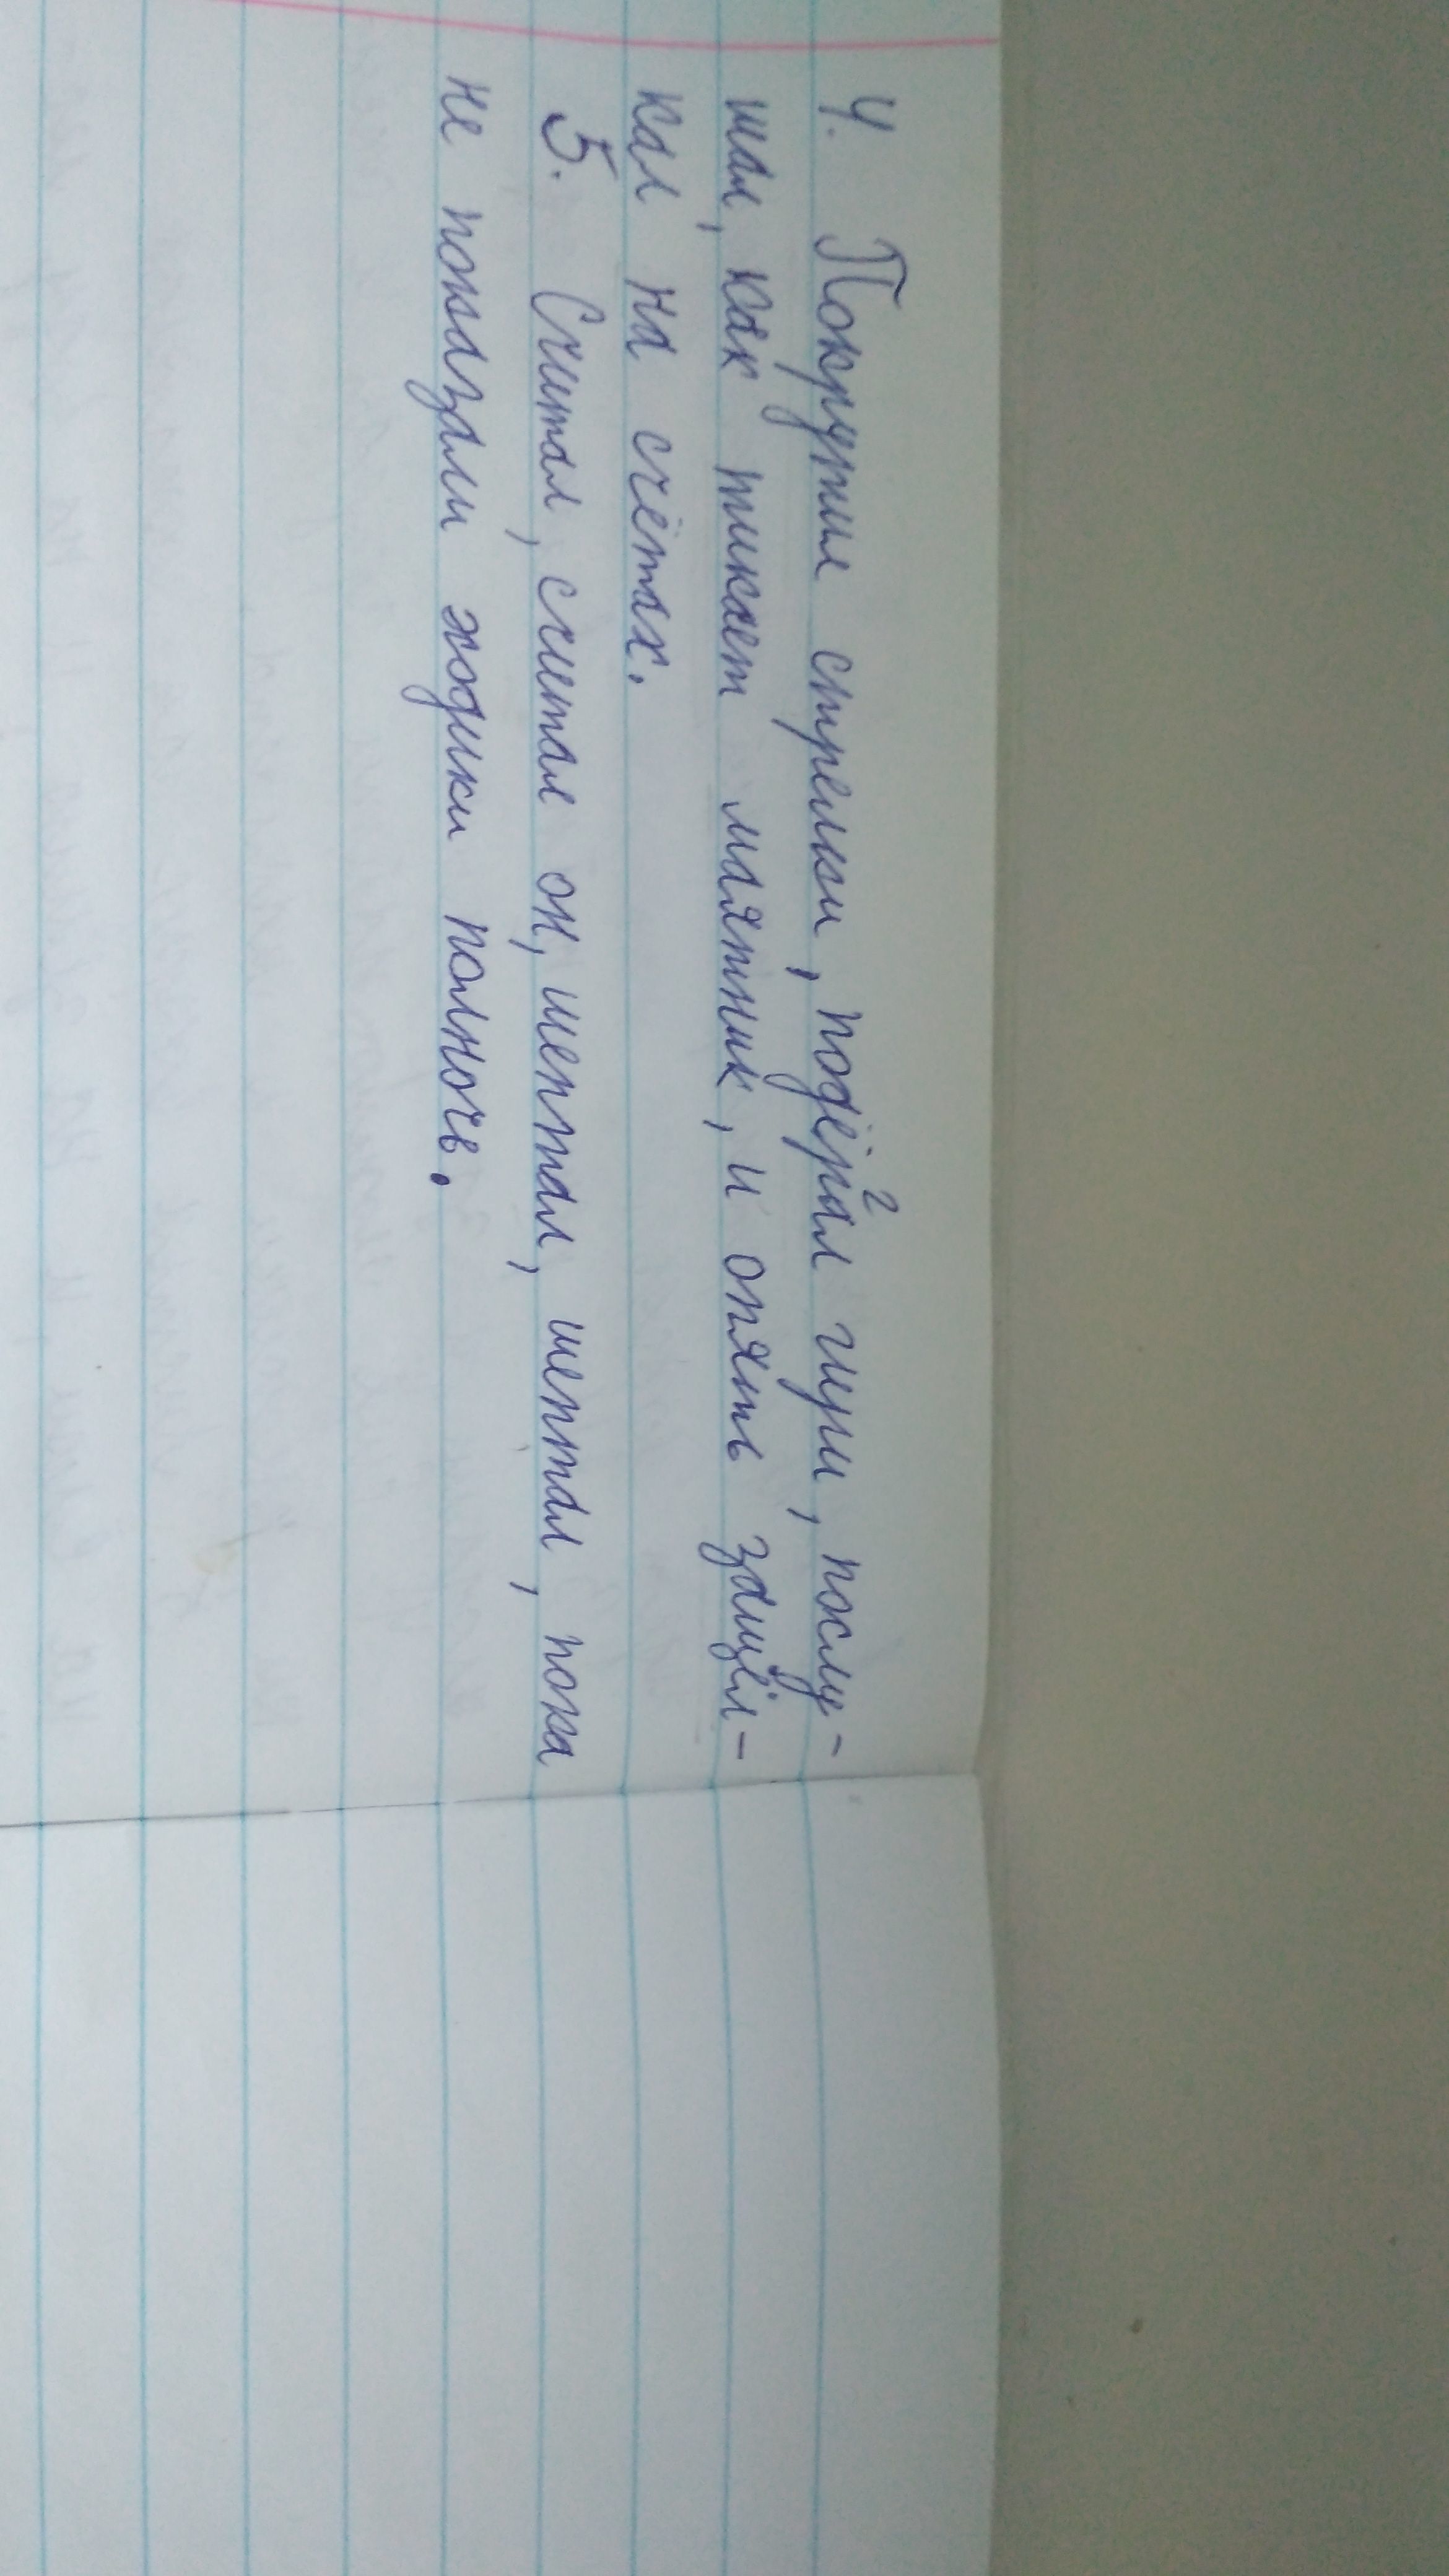 4. Покрутил стрелки, подёргал гири, послу-
шал, как тикает маятник, и опять защёл-
кал на счётах.
5. Считал, считал он, шептал, шептал, пока
не показали ходики полночь.